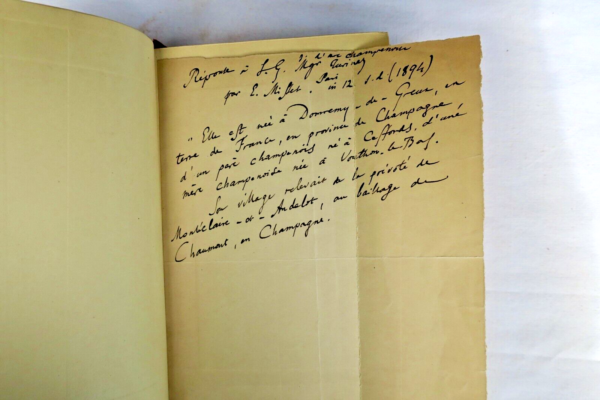 d'arc champenoise
Réponse à S. G. Mgr Turinaz
par E. Misset. Paris in 12 s.d (1894)
" Elle est née à Domremy-de-Greux, en
terre de France, en province de Champagne
d'un père champenois né à Ceffonds, d'une
mère champenoise née à Vouthon-le-Bas.
Son village relevait de la prévôté de
Montéclaire-et-Andelot, au bailliage de
Chaumont, en Champagne.